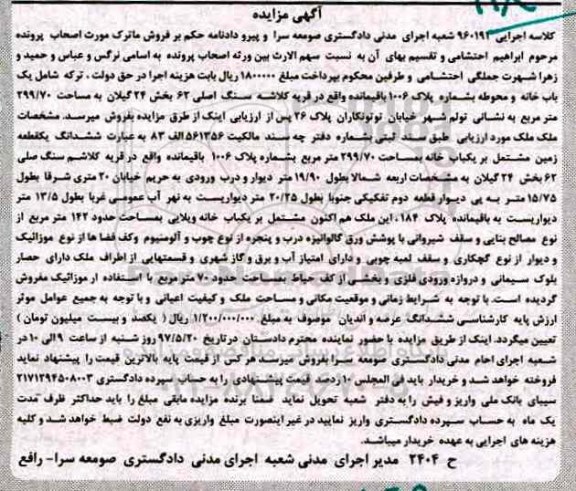 آگهی مزایده
کلاسه اجرایی ۹۶۰۱۹۳ شعبه اجرای مدنی دادگستری صومعه سرا و پیرو دادنامه حکم بر فروش ماترک مورث اصحاب پرونده
مرحوم ابراهیم احتشامی و تقسیم بهای آن به نسبت سهم الارث بین ورثه اصحاب پرونده به اسامی نرگس و عباس و حمید و
زهرا شهرت جملگی احتشامی و طرفین محکوم بپرداخت مبلغ ۱۸۰۰۰۰۰ ریال بابت هزینه اجرا در حق دولت ، ترکه شامل یک
باب خانه و محوطه بشماره پلاک ۱۰۰۶ باقیمانده واقع در قریه کلاشم سنگ اصلی ۶۲ بخش ۲۴ گیلان به مساحت ۲۹۹/۷۰
متر مربع به نشانی تولم شهر خیابان توتونکاران پلاک ۲۶ پس از ارزیابی اینک از طرق مزایده بفروش میرسد. مشخصات
ملک ملک مورد ارزیابی طبق سند ثبتی بشماره دفتر چه سند مالکیت ۵۶۱۳۵۶ الف ۸۳ به عبارت ششدانگ یکقطعه
زمین مشتمل بر یکباب خانه بمساحت ۲۹۹/۷۰ متر مربع بشماره پلاک ۱۰۰۶ باقیمانده واقع در قریه کلاشم سنگ صلی
۶۲ بخش ۲۴ گیلان به مشخصات اربعه شمالا بطول ۱۹/۹۰ متر دیوار و درب ورودی به حریم خیابان ۲۰ متری شرقا بطول
۱۵/۷۵ متر به پی دیوار قطعه دوم تفکیکی جنوبا بطول ۲۰/۲۵ متر دیواریست به نهر آب عمومی غربا بطول ۱۳/۵ متر
دیواریست به باقیمانده پلاک ۱۸۴، این ملک هم اکنون مشتمل بر یکباب خانه ویلایی بمساحت حدود ۱۴۲ متر مربع از
نوع مصالح بنایی و سقف شیروانی با پوشش ورق گالوانیزه درب و پنجره از نوع چوب و آلومنیوم وکف فضا ها از نوع موزائیک
و دیوار از نوع گچکاری و سقف لمبه چوبی و دارای امتیاز آب و برق و گاز شهری و قسمتهایی از اطراف ملک دارای حصار
بلوک سیمانی و دروازه ورودی فلزی و بخشی از کف حیاط بمساحت حدود ۷۰ متر مربع با استفاده از موزائیک مفروش
گردیده است. با توجه به شرایط زمانی و موقعیت مکانی و مساحت ملک و کیفیت اعیانی و با توجه به جمیع عوامل موثر
ارزش پایه کارشناسی ششدانگ عرصه و اندیان موصوف به مبلغ ۱/۲۰۰/۰۰۰/۰۰۰ ریال ( یکصد و بیست میلیون تومان )
تعیین میگردد. اینک از طریق مزایده با حضور نماینده محترم دادستان در تاریخ ۹۷/۵/۲۰ روز شنبه از ساعت ۹ الی ۱۰ در
شعبه اجرای احام مدنی دادگستری صومعه سرا بفروش میرسد هر کس از قیمت پایه بالاترین قیمت را پیشنهاد نماید
فروخته خواهد شد و خریدار باید فی المجلس ۱۰ درصد قیمت پیشنهادی را به حساب سپرده دادگستری ۲۱۷۱۲۹۴۵۰۸۰۰۳
سیبای بانک ملی واریز و فیش را به دفتر شعبه تحویل نماید ضمنا برنده مزایده مابقی مبلغ را باید حداکثر ظرف مدت
یک ماه به حساب سپرده دادگستری واریز نمایید در غیر اینصورت مبلغ واریزی به نفع دولت ضبط خواهد شد و کلیه
هزینه های اجرایی به عهده خریدار میباشد.
ح ۲۴۰۴ مدیر اجرای مدنی شعبه اجرای مدنی دادگستری صومعه سرا- رافع